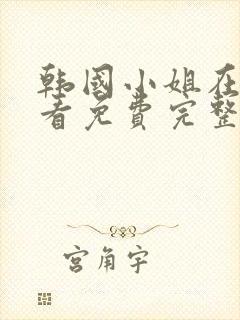 韩国小姐在
看免费完整
宫角宇